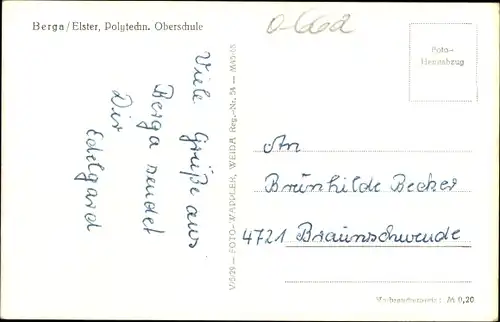 Berga/Elster, Polytechn. Oberschule
Foto-
Handabzug
Viele Grüße aus
Berga sendet
Dir
Edelgard
V/5/29 — FOTO-WADDLER, WEIDA Reg.-Nr. 54 — M/45/65
An
Brünhilde Becker
4721 Braunschwende
Verbraucherpreis: M 0,20